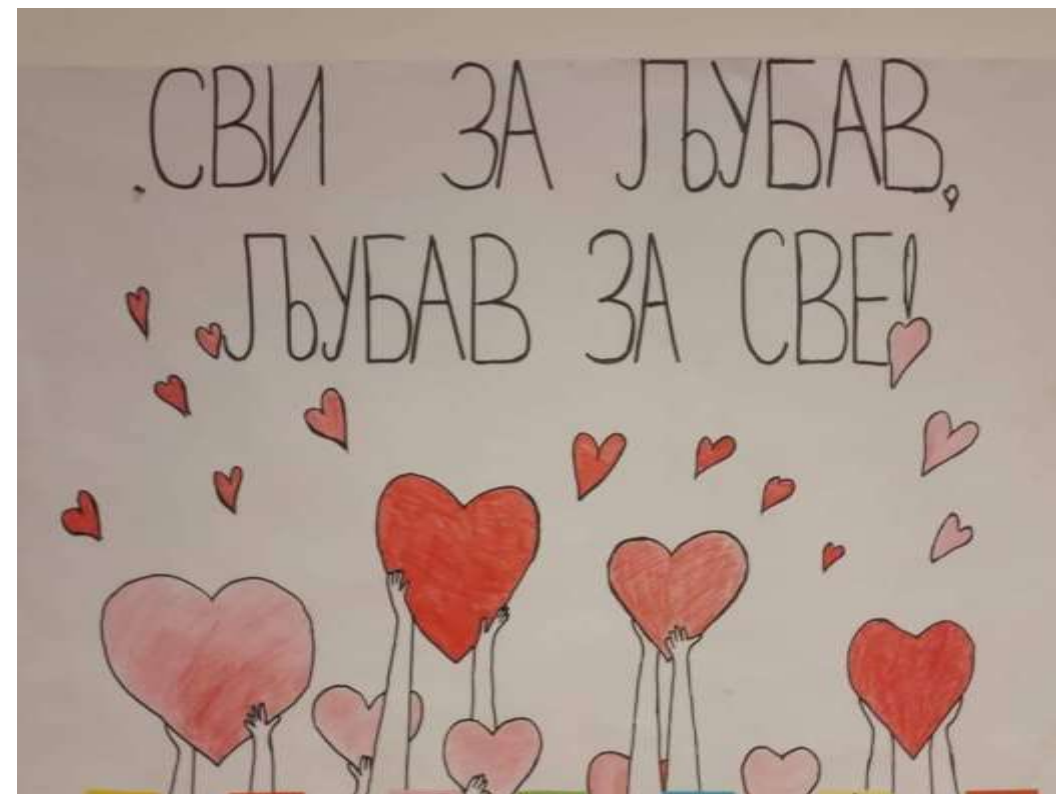 СВИ ЗА ЉУБАВ,
ЉУБАВ ЗА СВЕ!